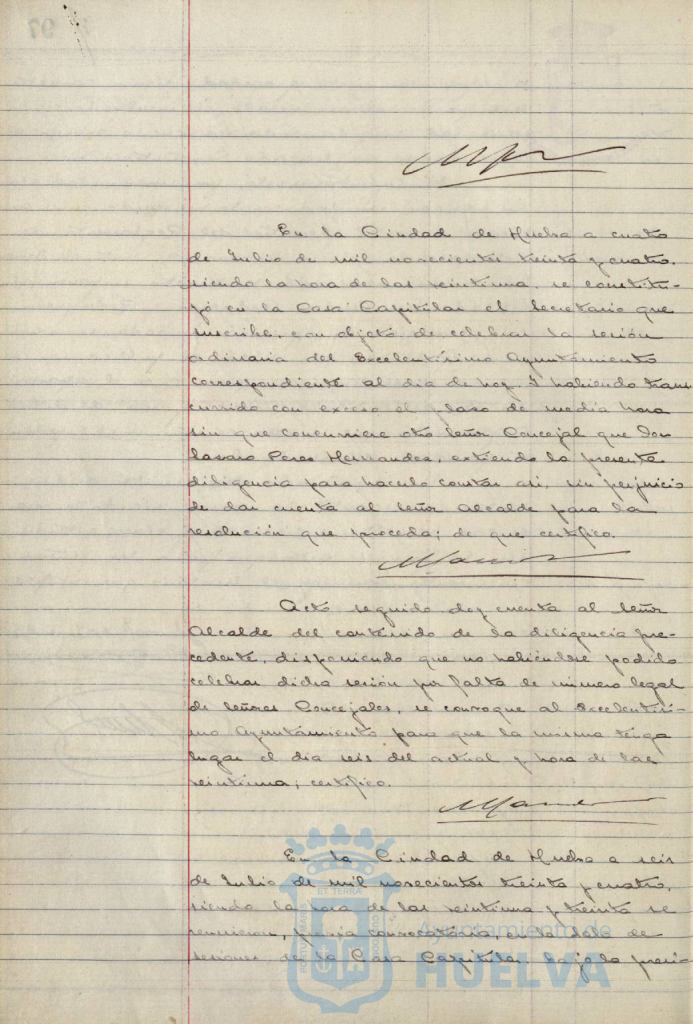 En la Ciudad de Huelva a cuatro
de Julio de mil novecientos treinta y cuatro,
siendo la hora de las veintiuna, se constitu-
yó en la Casa Capitular el Secretario que
suscribe, con objeto de celebrar la sesión
ordinaria del Excelentísimo Ayuntamiento
correspondiente al dia de hoy. Y habiendo trans
currido con exceso el plazo de media hora
sin que concurriere otro Señor Concejal que Don
Lazaro Perez Hernandez, extiendo la presente
diligencia para hacerlo constar asi, sin perjuicio
de dar cuenta al Señor Alcalde para la
resolución que proceda; de que certifico.
Acto seguido doy cuenta al Señor
Alcalde del contenido de la diligencia pre-
cedente, disponiendo que no habiéndose podido
celebrar dicha sesión por falta de número legal
de Señores Concejales, se convoque al Excelentísi-
mo Ayuntamiento para que la misma tenga
lugar el dia seis del actual y hora de las
veintiuna; certifico.
En la Ciudad de Huelva a seis
de Julio de mil novecientos treinta y cuatro,
siendo la hora de las veintiuna y treinta se
reunieron, previa convocatoria, en la Sala de
sesiones de la Casa Capitular, bajo la presi-
Ayuntamiento de
HUELVA